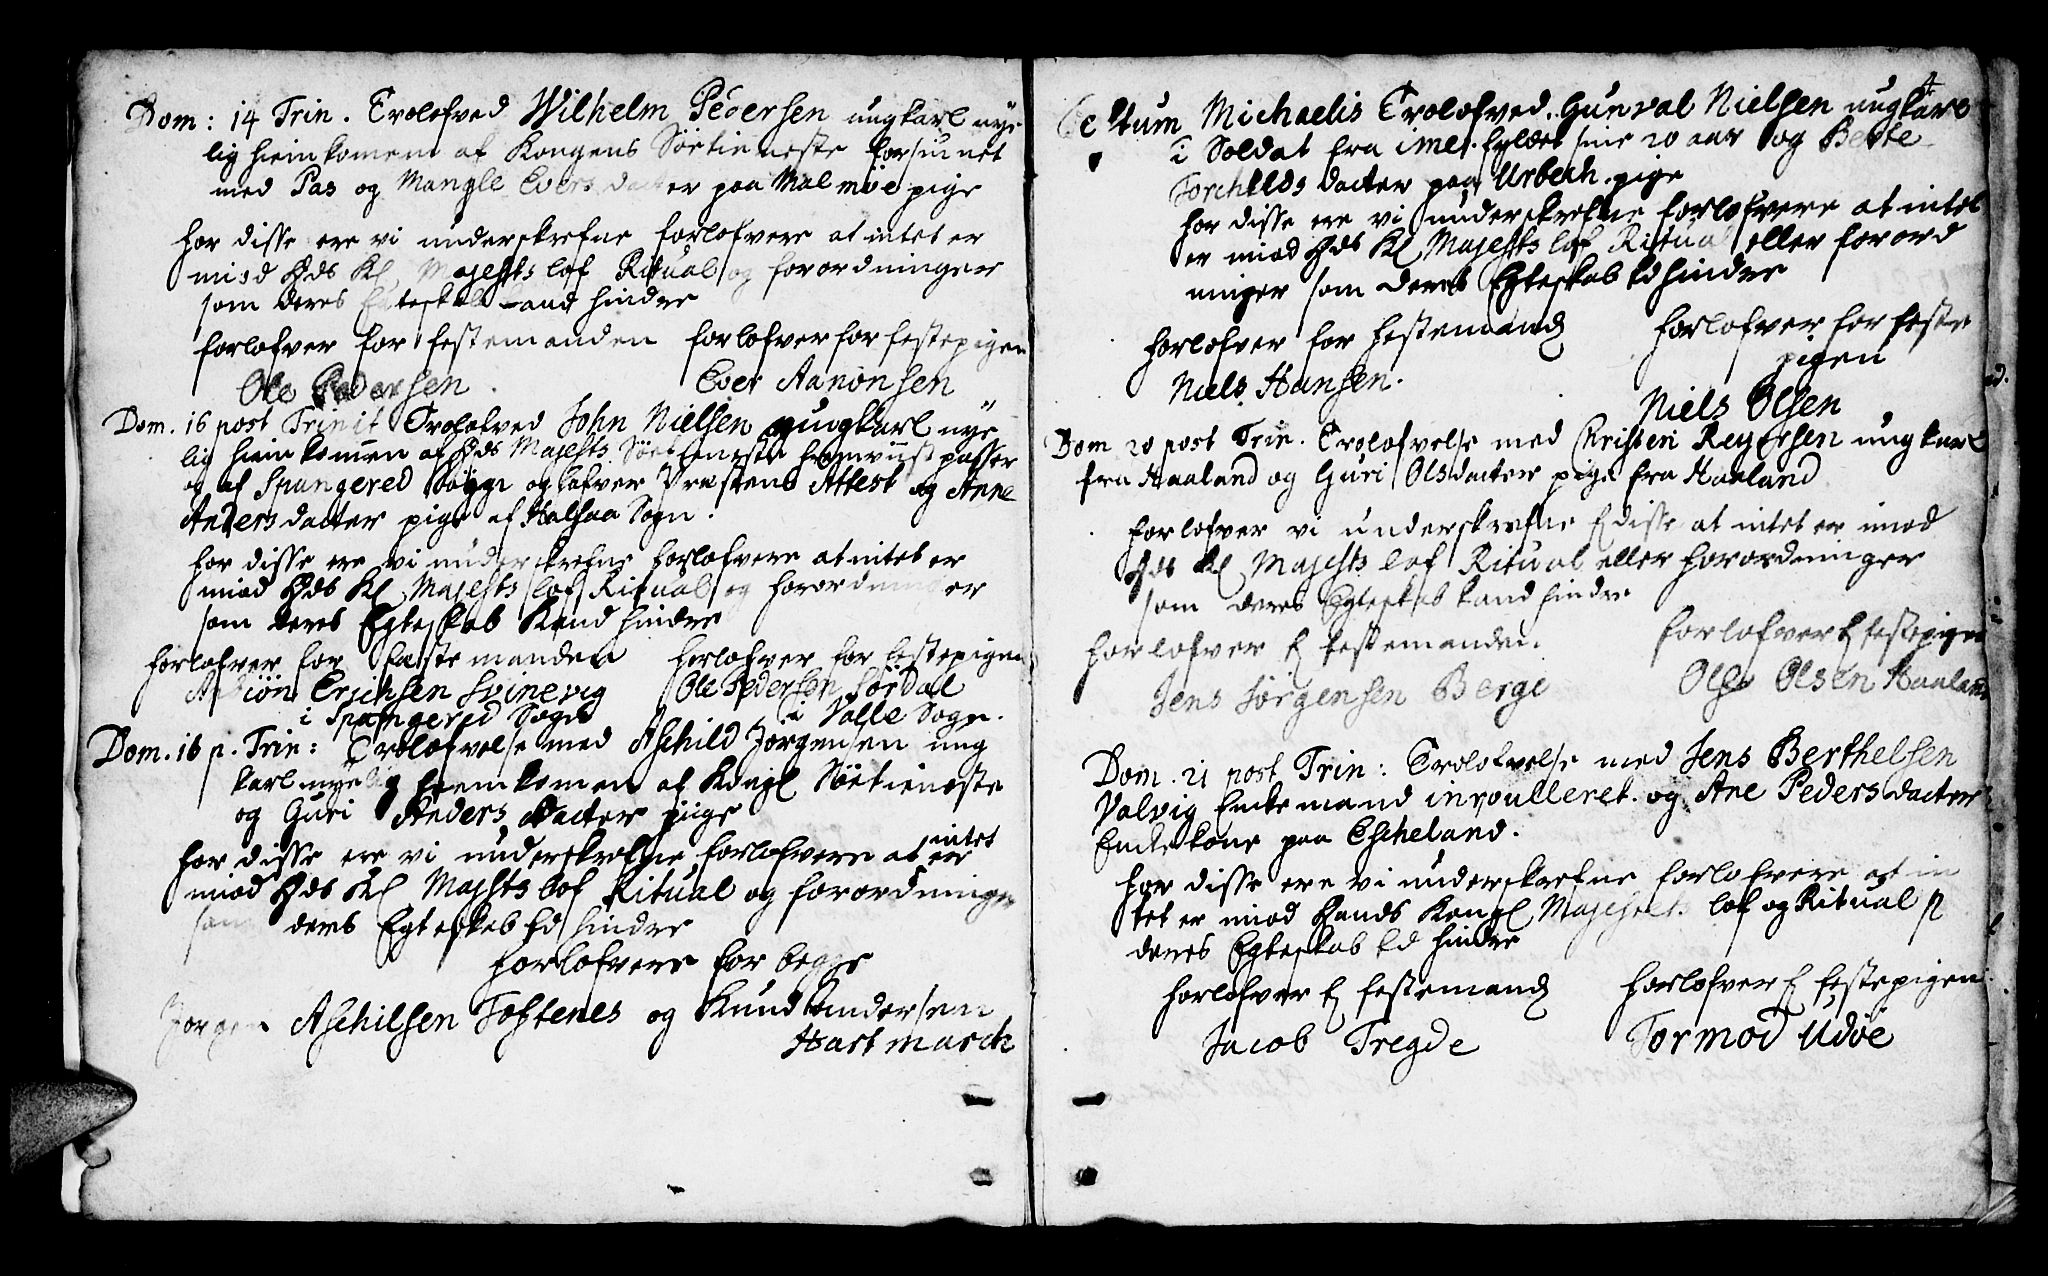 Dom: 14 Trin. Trolofved Wilhelm Pedersen ungkarl nye
lig hiemkomen af Kongens Söetieneste forsiunet
med Pas og Mangle Evers dacter paa Malmöe pige
for disse ere vi underskrefne forlofvere at intet er
miod Hds Kl Majests lof Ritual og forordninger
som deres Egteskab kand hindre
forlofver for festemanden forlofver for festepigen
Ole Pedersen. Ever Aanonsen
Dom. 16 post Trinit Trolofved John Nielsen ungkarl nye
lig hiemkommen af Hds Majests Söetieneste fremviist passer
og af Spangered Sogn og lofver Præstens Attest og Anne
Anders dacter pige af Halsaa Sogn.
for disse ere vi underskrefne forlofvere at intet er
miod Hds Kl Majests lof Ritual og forordninger
som deres Egteskab Kand hindre
forlofver for festemanden forlofver for festepigen
Asbiön Erichsen Svinevig Ole Pedersen Sördal
i Spangered Sogn i Valle Sogn.
Dom. 16 p. Trin: Trolofvelse med Aschild Jorgensen ung
karl nyelig hiemkomen af Kongl Söetieneste
og Guri Anders dacter piige
for disse ere vi underskrefne forlofvere at intet er
miod Hds Kl Majests lof Ritual og forordninger
som deres Egteskab kd hindre
forlofvere for begge
Jorgen Aschilsen Toftenes og Knud Andersen
Hartmarck
4
Festum Michaelis Trolofved Gunval Nielsen ungkarl
i Soldat fra ime. fyldet sine 20 aar og Berte
Torchilds dacter paa Urbech pige
for disse ere vi underskrefne forlofvere at intet
er miod Hds Kl Majests lof Ritual eller forord
ninger som deres Egteskab kd hindre
forlofver for festemand forlofver for feste
pigen
Niels Hansen. Niels Olsen
Dom 20 post Trin. Trolofvelse med Christen Reyersen ungkarl
fra Haaland og Guri Olsdacter pige fra Haaland
forlofver vi underskrefne f disse at intet er imod
Hds Kl Majests lof Ritual eller forordninger
som deres Egteskab kand hindre
forlofver f festemanden. forlofver f festepigen
Jens Jörgensen Berge Ole Olsen Haaland
Dom. 21 post Trin: Trolofvelse med Jens Berthelsen
Valvig Enkemand inroulleret og Ane Peders dacter
Enkekone paa Escheland.
for disse ere vi underskrefne forlofvere at in
tet er miod Hands Kongl Majestets lof og Ritual
deres Egteskab kd hindre
forlofver f festemand forlofver f festepigen
Jacob Tregde Tormod Udöe